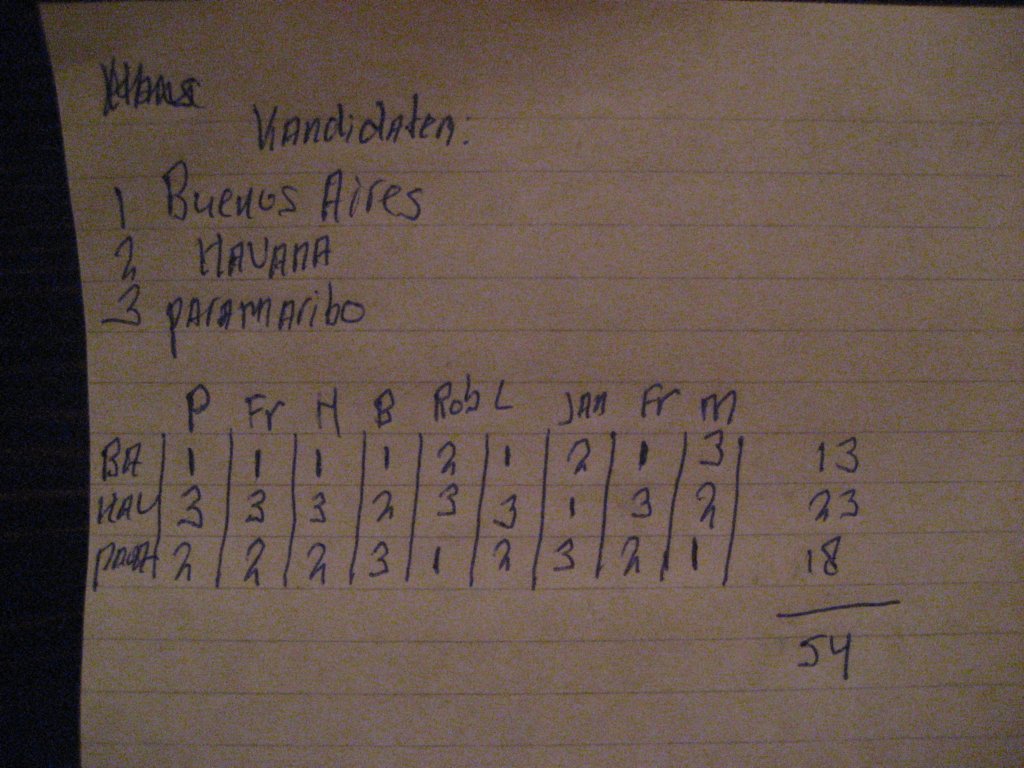 Kandidaten:
1 Buenos Aires
2 HAVANA
3 paramaribo
P Fr H B Rob L JAN Fr M
BA 1 1 1 1 2 1 2 1 3 13
HAV 3 3 3 2 3 3 1 3 2 23
2 2 2 3 1 2 3 2 1 18
54